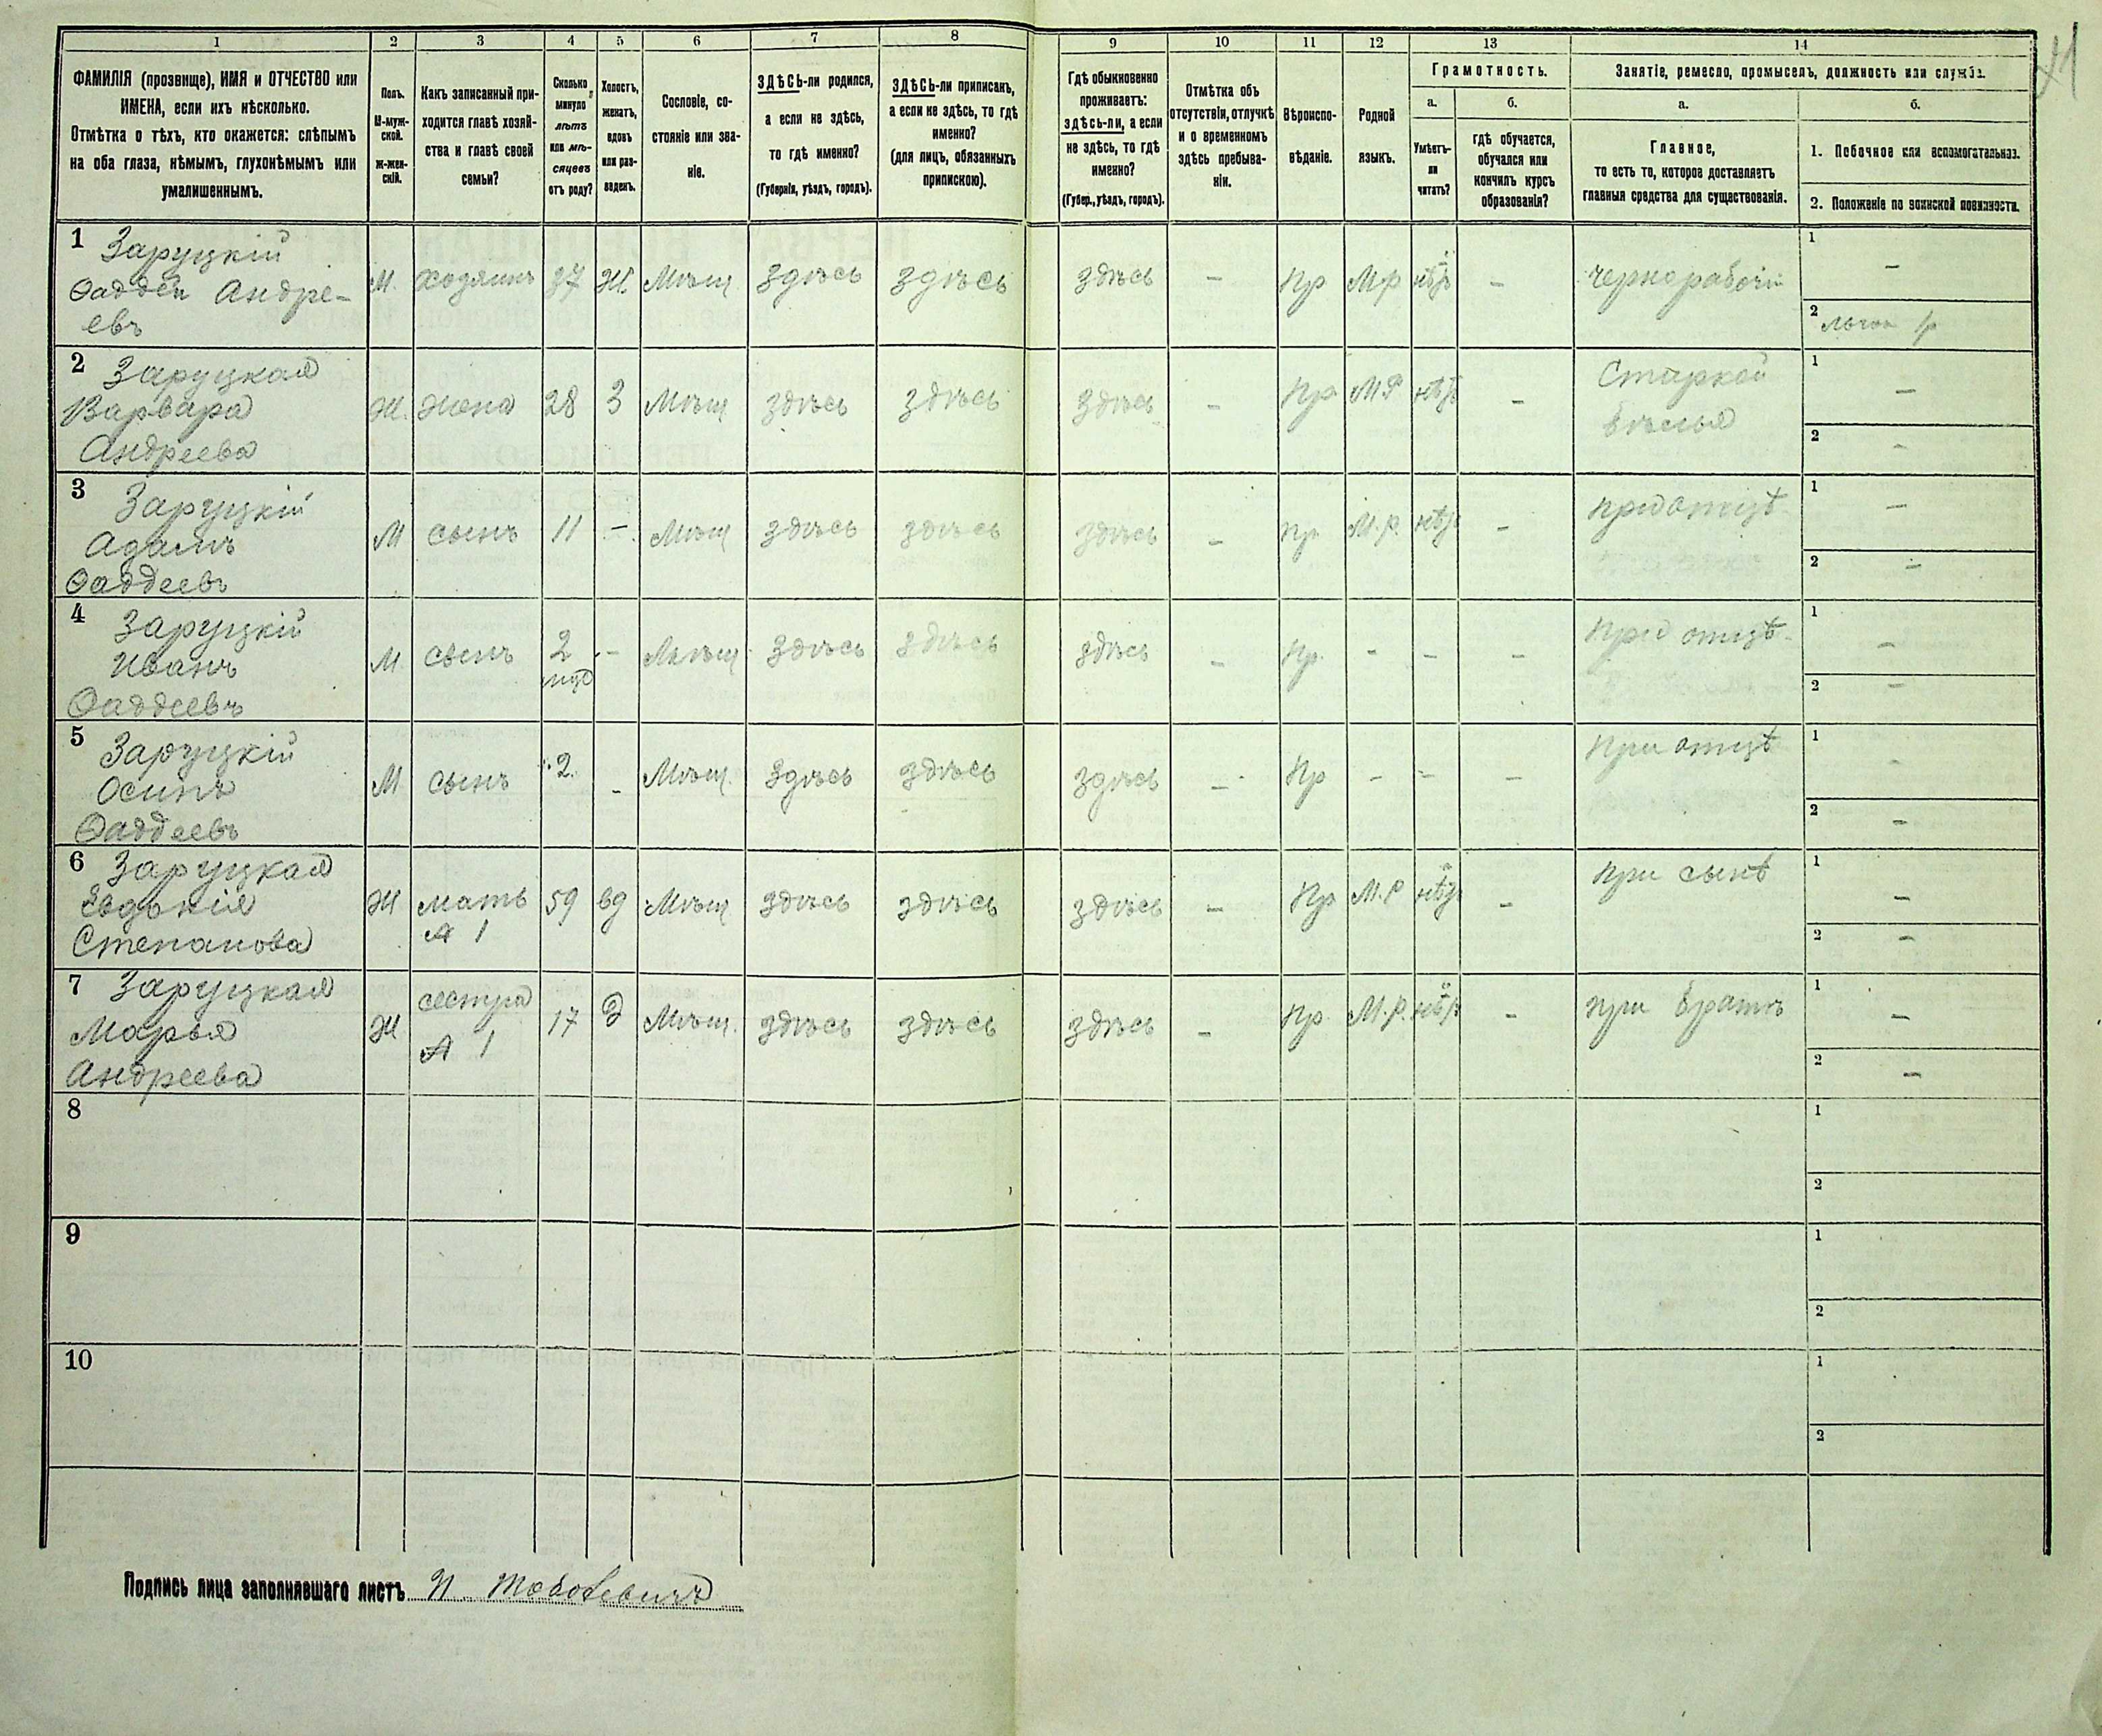 41
1 2 3 4 5 6 7 8 9 10 11 12 13 14
ФАМИЛІЯ (прозвище), ИМЯ и ОТЧЕСТВО или
ИМЕНА, если ихъ нѣсколько.
Отмѣтка о тѣхъ, кто окажется: слѣпымъ
на оба глаза, нѣмымъ, глухонѣмымъ или
умалишеннымъ.
Полъ.
М-муж-
ской.
ж-жен-
скій.
Какъ записанный при-
ходится главѣ хозяй-
ства и главѣ своей
семьи?
Сколько
минуло
лѣтъ
или мѣ-
сяцевъ
отъ роду?
Холостъ,
женатъ,
вдовъ
или раз-
веденъ.
Сословіе, со-
стояніе или зва-
ніе.
ЗДѢСЬ-ли родился,
а если не здѣсь,
то гдѣ именно?
(Губернія, уѣздъ, городъ).
ЗДѢСЬ-ли приписанъ,
а если не здѣсь, то гдѣ
именно?
(для лицъ, обязанныхъ
припискою).
Гдѣ обыкновенно
проживаетъ:
здѣсь-ли, а если
не здѣсь, то гдѣ
именно?
(Губер., уѣздъ, городъ).
Отмѣтка объ
отсутствіи, отлучкѣ
и о временномъ
здѣсь пребыва-
ніи.
Вѣроиспо-
вѣданіе.
Родной
языкъ.
Грамотность.
а.
Умѣетъ-
ли
читать?
б.
гдѣ обучается,
обучался или
кончилъ курсъ
образованія?
Занятіе, ремесло, промыселъ, должность или служба.
а.
Главное,
то есть то, которое доставляетъ
главныя средства для существованія.
б.
1. Побочное или вспомогательное.
2. Положеніе по воинской повинности.
1 Заруцкій
Фаддей Андре-
евъ
М. хозяинъ 37 Ж Мѣщ здѣсь здѣсь здѣсь - Пр М.р нѣтъ - чернорабочій
1 -
2 льгот 1р
2 Заруцкая
Варвара
Андреева
Ж. жена 28 З Мѣщ здѣсь здѣсь здѣсь - Пр М.Р нѣтъ -
бѣлья
1 -
2 -
3 Заруцкій
Адамъ
Фаддеевъ
М сынъ 11 - Мѣщ здѣсь здѣсь здѣсь - Пр М.р. нѣтъ - при отцѣ
1 -
2 -
4 Заруцкій
Иванъ
Фаддеевъ
М. сынъ 2 - Мѣщ здѣсь здѣсь здѣсь - Пр. - - - При отцѣ
1 -
2 -
5 Заруцкій
Осипъ
Фаддеевъ
М сынъ 2. - Мѣщ. здѣсь здѣсь здѣсь - Пр - - - при отцѣ
1 -
2 -
6 Заруцкая
Евдокія
Степанова
Ж мать 59 вд Мѣщ здѣсь здѣсь здѣсь - Пр М.Р нѣтъ - при сынѣ
1
1 -
2 -
7 Заруцкая
Марья
Андреева
Ж сестра 17 Мѣщ. здѣсь здѣсь здѣсь - Пр. М.р. нѣтъ - при братѣ
1
1 -
2 -
8
1
2
9
1
2
10
1
2
Подпись лица заполнявшаго листъ